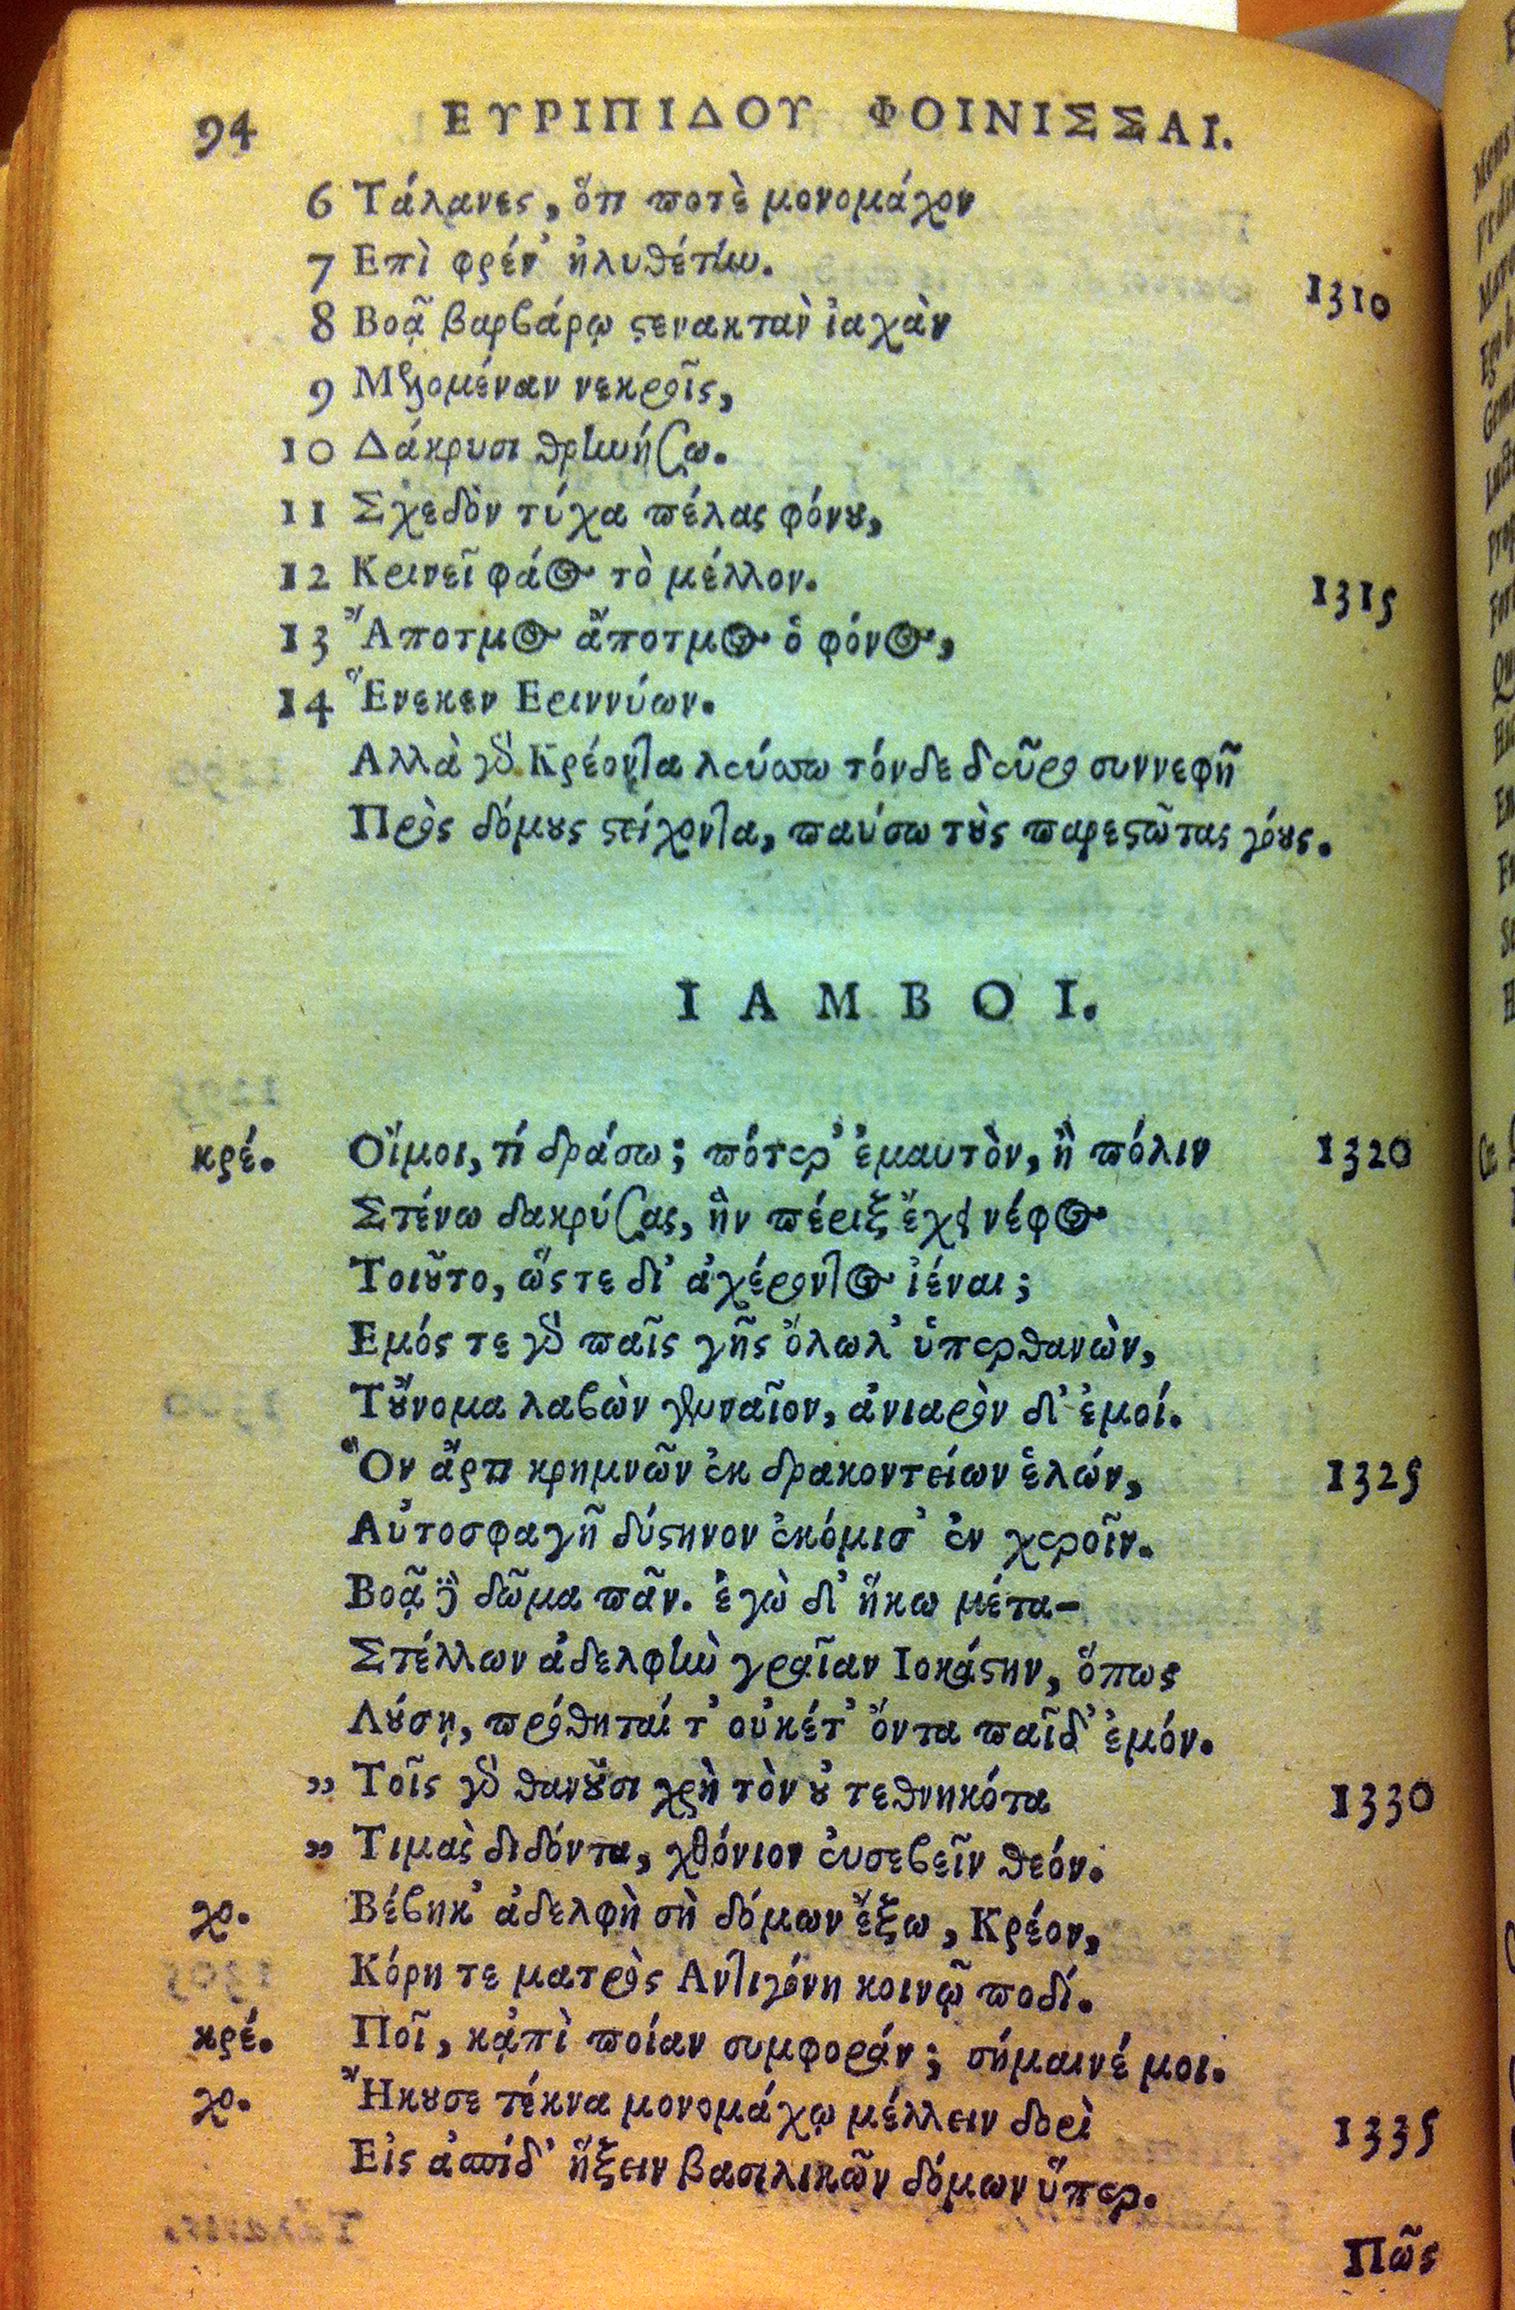 94 ΕΥΡΙΠΙΔΟΥ ΦΟΙΝΙΣΣΑΙ.
6 Τάλανες, ὅτι ποτὲ μονομάχον
7 Επὶ φρέν' ἠλυθέτην.
8 Βοᾷ βαρβάρῳ στενακτὰν ἰαχὰν 1310
9 Μελομέναν νεκροῖς,
10 Δάκρυσι θρηνήσω.
11 Σχεδὸν τύχα πέλας φόνου,
12 Κρινεῖ φάος τὸ μέλλον. 1315
13 Ἄποτμος ἄποτμος ὁ φόνος,
14 Ἕνεκεν Εριννύων.
Αλλὰ γὰρ Κρέοντα λεύσσω τόνδε δεῦρο συννεφῆ
Πρὸς δόμους στείχοντα, παύσω τοὺς παρεστῶτας γόους.
ΙΑΜΒΟΙ.
κρέ. Οἴμοι, τί δράσω; πότερ' ἐμαυτὸν, ἢ πόλιν 1320
Στένω δακρύσας, ἣν πέριξ ἔχει νέφος
Τοιοῦτο, ὥστε δι' ἀχέροντος ἰέναι;
Εμός τε γὰρ παῖς γῆς ὄλωλ' ὑπερθανὼν,
Τοὔνομα λαβὼν γενναῖον, ἀνιαρὸν δ' ἐμοί.
Ὃν ἄρτι κρημνῶν ἐκ δρακοντείων ἑλών, 1325
Αὐτοσφαγῆ δύστηνον ἐκόμισ' ἐν χεροῖν.
Βοᾷ δὲ δῶμα πᾶν. ἐγὼ δ' ἥκω μέτα-
Στέλλων ἀδελφὴν γραῖαν Ιοκάστην, ὅπως
Λούσῃ, πρόθηταί τ' οὐκέτ' ὄντα παῖδ' ἐμόν.
„ Τοῖς γὰρ θανοῦσι χρὴ τὸν οὐ τεθνηκότα 1330
„ Τιμὰς διδόντα, χθόνιον εὐσεβεῖν θεόν.
χο. Βέβηκ' ἀδελφὴ σὴ δόμων ἔξω, Κρέον,
Κόρη τε ματρὸς Αντιγόνη κοινῷ ποδί.
κρέ. Ποῖ, κἀπὶ ποίαν συμφοράν; σήμαινέ μοι.
χο. Ἤκουσε τέκνα μονομάχῳ μέλλειν δορὶ 1335
Εἰς ἀσπίδ' ἥξειν βασιλικῶν δόμων ὕπερ.
Πῶς